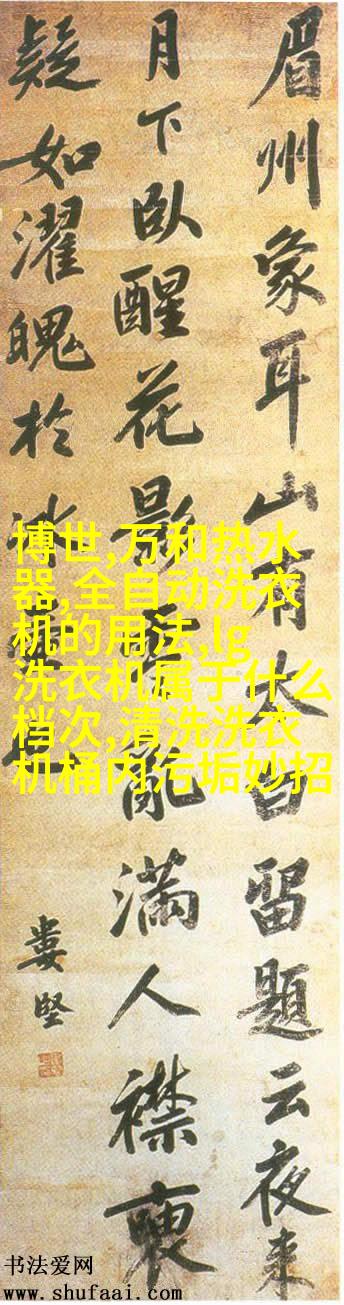 眉州象耳山有太白留題云夜来
月下臥醒花影零亂滿人襟
疑如濯魄於冰
婁堅
博世,万和热水
器,全自动洗衣
机的用法,lg
洗衣机属于什么
档次,清洗洗衣
机桶内污垢妙招
书法爱网
www.shufaai.com